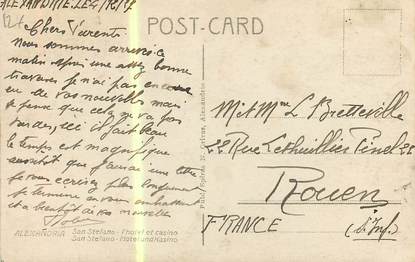 ALEXANDRIE LE 6/12/27
POST-CARD
Chers Parents
Nous sommes arrivés ce
matin après une assez bonne
traversée je n'ai pas encore
eu de vos nouvelles mais
je pense que cela ne va pas
tarder, ici il fait beau
le temps est magnifique
aussitôt que j'aurai une lettre
je vous écrirai plus longuement
je termine en vous embrassant
et à bientôt de vos nouvelles
M et Mme L Bretteville
22 Rue Lethuillier Pinel 22
Rouen
FRANCE (S. Inf.)
ALEXANDRIA San Stefano - l'hotel et casino
San Stefano - Hotel und Kasino